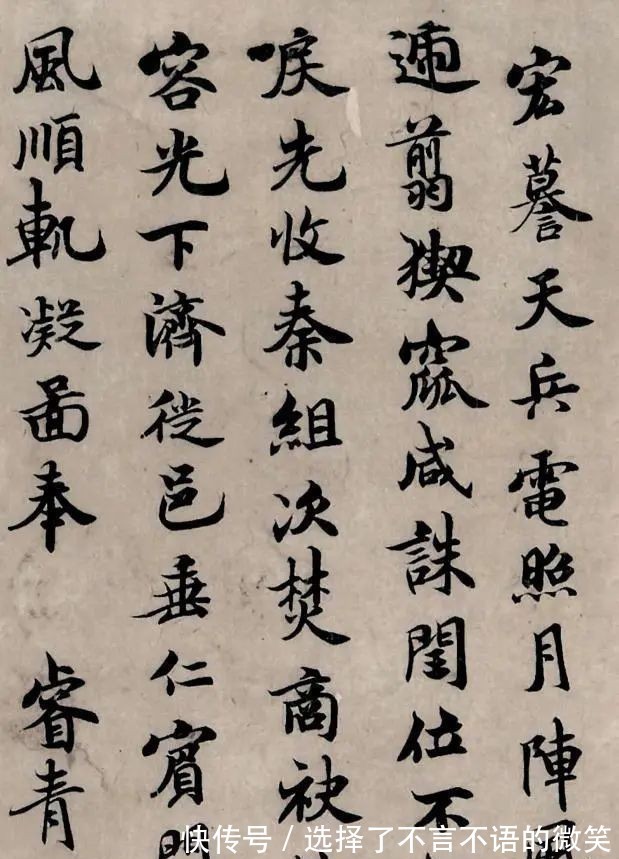 宏謩天兵電照月陣
遄翦猰窳咸誅閏位不
唳先收秦組次焚商袂
容光下濟徙邑垂仁賓明
風順軌凝圖奉 睿青
快传号 / 选择了不言不语的微笑